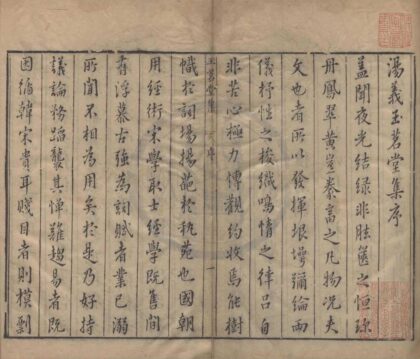 湯義玉茗堂集序
蓋聞夜光結綠非胠篋之恒珍
丹鳳翠黃豈豢畜之凡物况夫
文也者所以發揮垠堮彌綸兩
儀抒性之梭織鳴情之律呂自
非苦心極力博觀約收焉能樹
幟於詞場揚葩於秇苑也國朝
用經術宋學取士經學既舊間
有浮慕古強為詞賦者業已溺
所聞不相為用矣於是乃好持
議論務蹈襲其憚難趨易者既
因循韓宋貴耳賤目者則摸剽
玉茗堂集
序
一